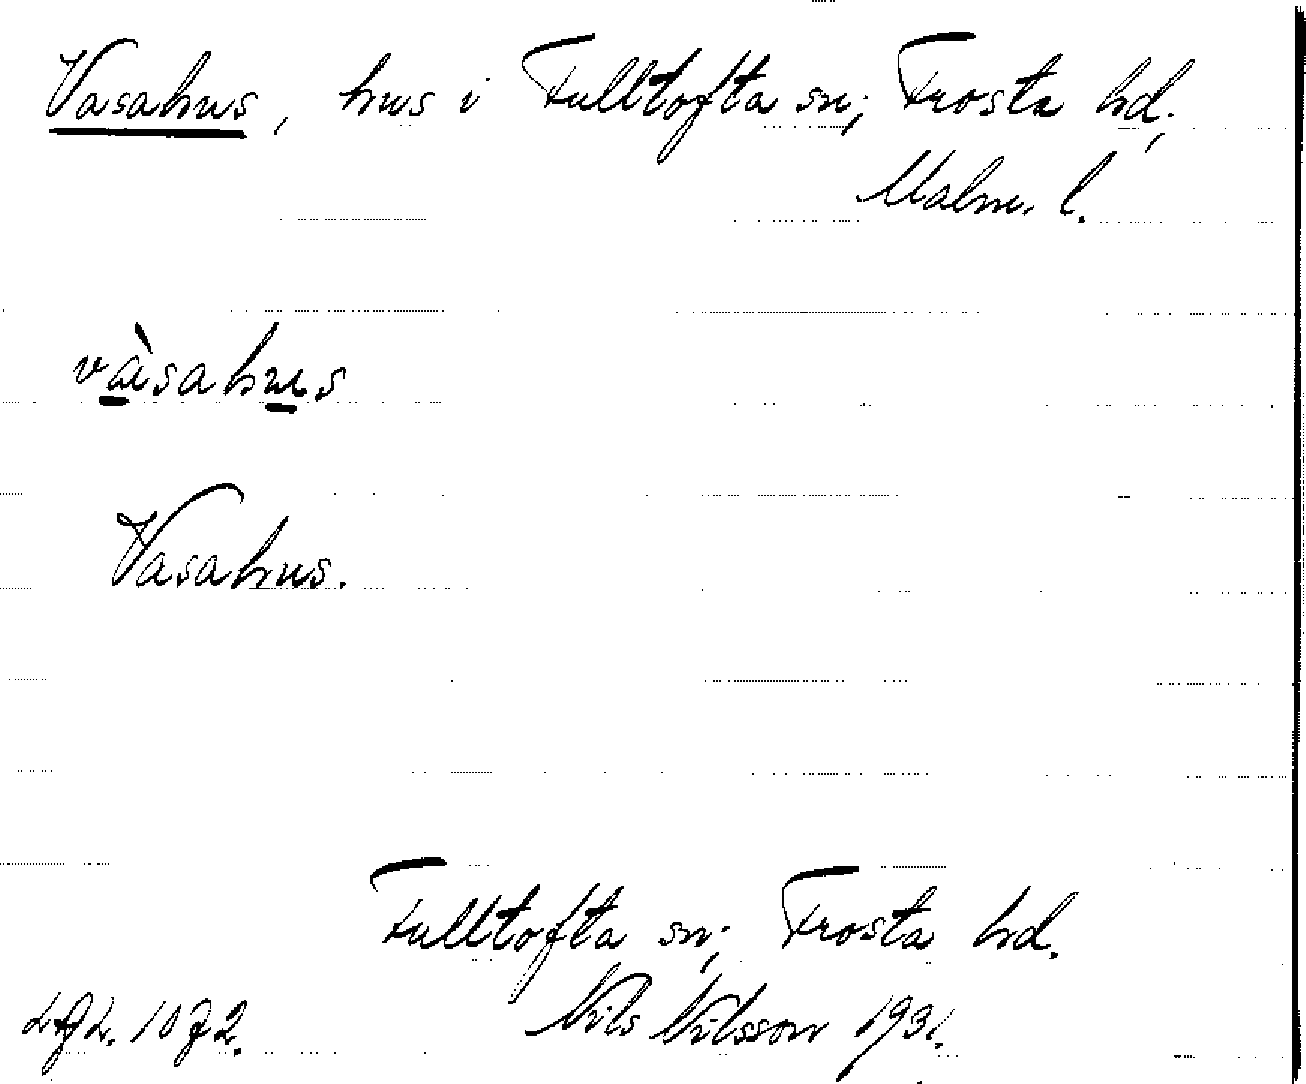 Vasahus, hus i Fulltofta sn; Frosta hd;
Malm. l.
vàsahus
Vasahus.
Fulltofta sn; Frosta hd.
Nils Nilsson 1931.